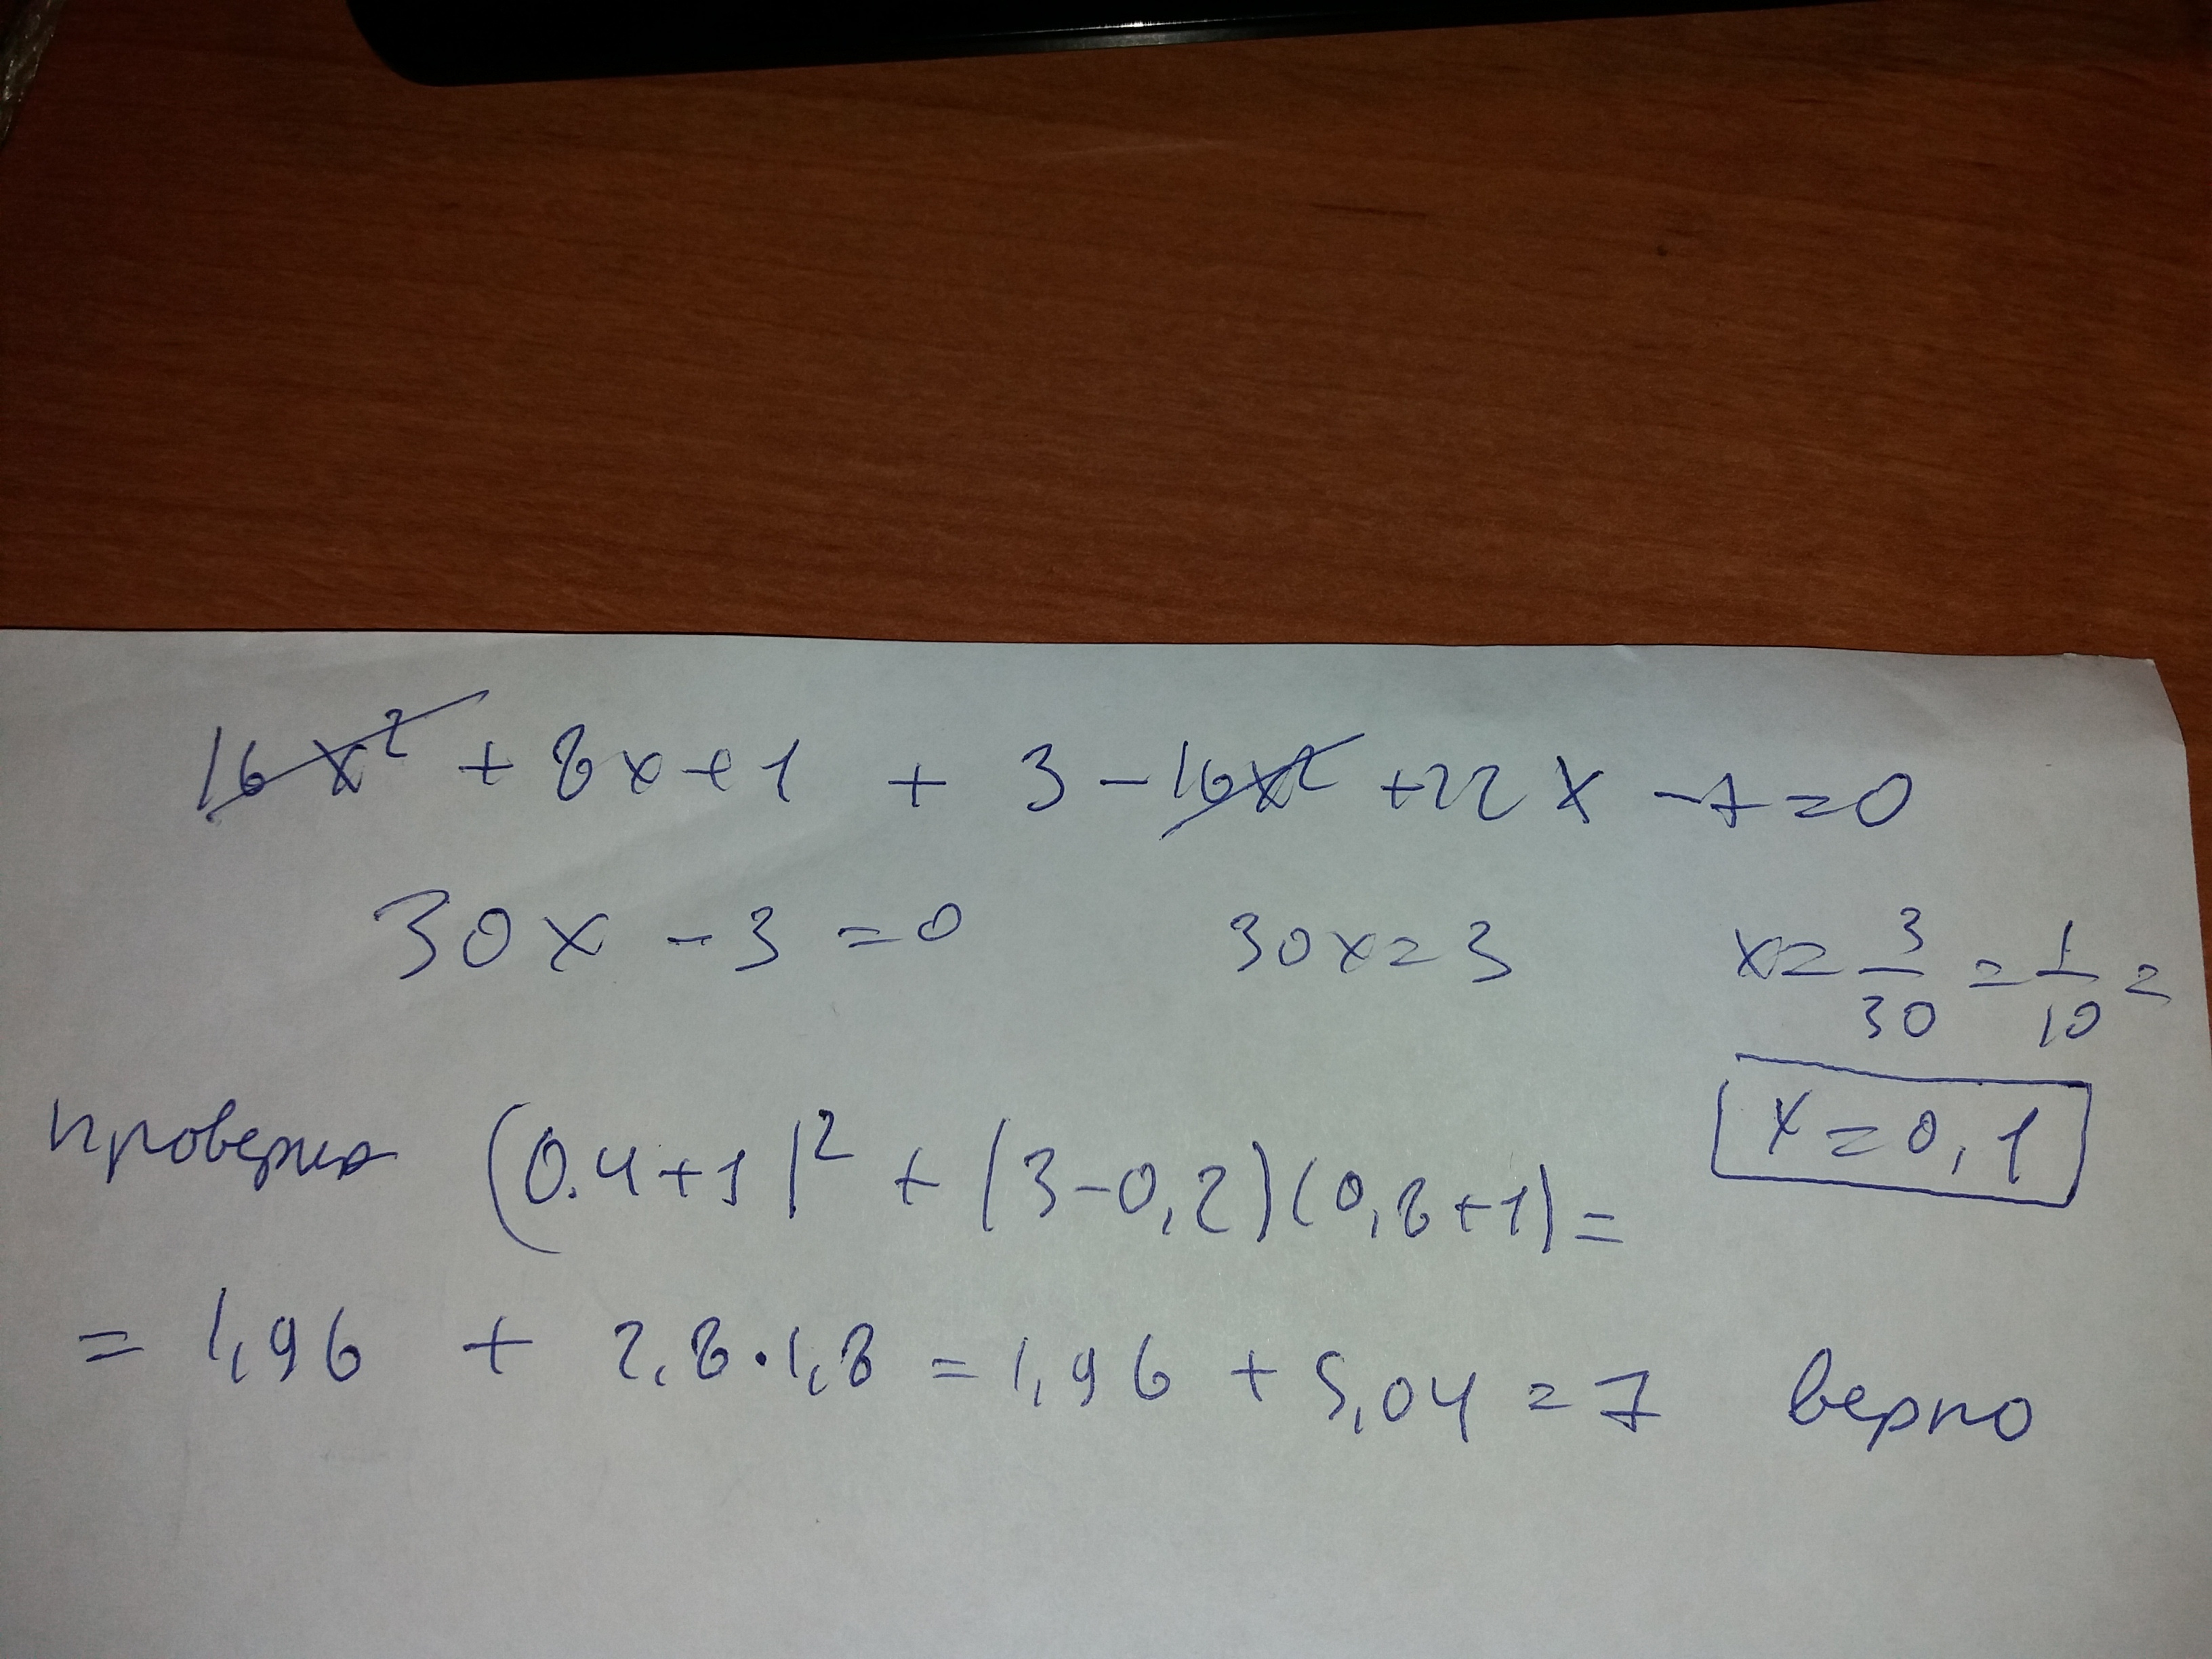 16x² + 8x + 1 + 3 - 16x² + 22x - 7 = 0
30x - 3 = 0 30x = 3 x = 3/30 = 1/10 =
x = 0,1
проверка (0.4+1)² + (3-0,2)(0,8+1) =
= 1,96 + 2,8·1,8 = 1,96 + 5,04 = 7 верно